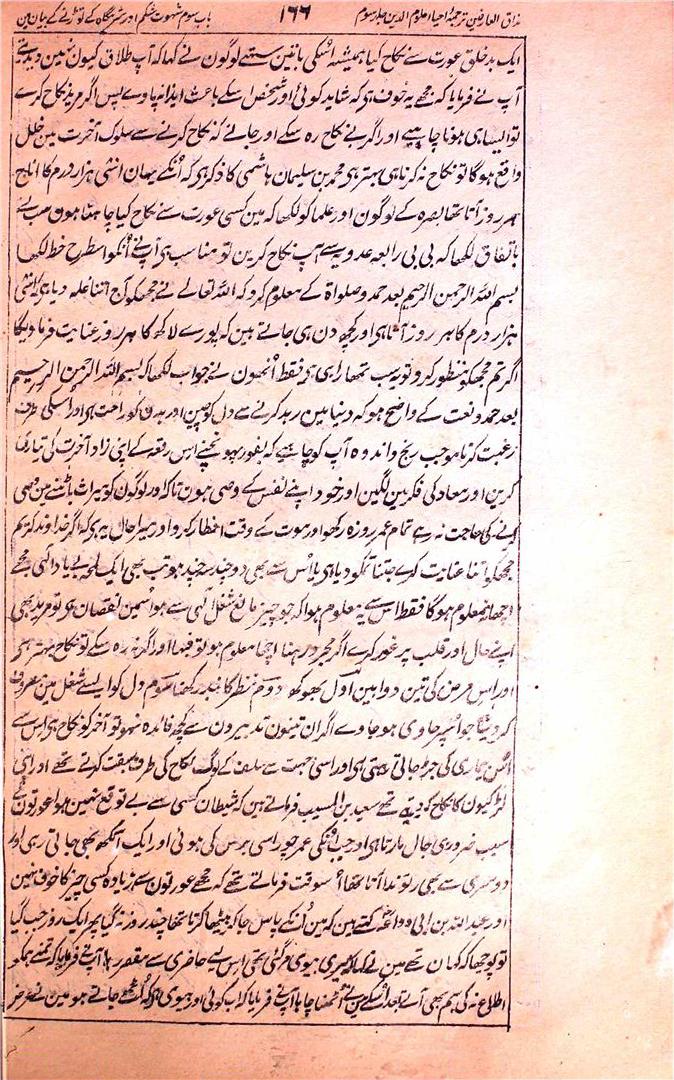 مذاق العارفین ترجمۂ احیاء علوم الدین جلد سوم ۱۶۶ باب سوم شہوت شکم اور شرمگاہ کے توڑنے کے بیان مین
ایک بدخلق عورت سے نکاح کیا ہمیشہ اُسکی باتین سہتے لوگون نے کہا کہ آپ طلاق کیون نہین دیدیتے
آپ نے فرمایا کہ مجھے یہ خوف ہی کہ شاید کوئی اور شخص اسکے باعث ایذا نہ پاوے پس اگر مرید نکاح کرے
تو ایسا ہی ہونا چاہیے اور اگر بے نکاح رہ سکے اور جانے کہ نکاح کرنے سے سلوک آخرت مین خلل
واقع ہوگا تو نکاح نہ کرنا ہی بہتر ہی محمد بن سلیمان ہاشمی کا ذکر ہی کہ اُنکے یہان اسّی ہزار درم کا اناج
ہر روز آتا تھا بصرہ کے لوگون اور علما کو لکھا کہ مین کسی عورت سے نکاح کیا چاہتا ہون سب نے
باتفاق لکھا کہ بی بی رابعہ عدویہ سے آپ نکاح کرین تو مناسب ہی آپنے اُنکو اسطرح خط لکھا
بسم اللہ الرحمن الرحیم بعد حمد وصلواۃ کے معلوم کرو کہ اللہ تعالے نے مجھکو آج اتنا غلہ دیا ہی کہ اسّی
ہزار درم کا ہر روز آتا ہی اور کچھ دن ہی جاتے ہین کہ پورے لاکھ کا ہر روز عنایت فرماویگا
اگر تم مجھکو منظور کرو تو یہ سب تمھارا ہی ہی فقط اُنھون نے جواب لکھا کہ بسم اللہ الرحمن الرحیم
بعد حمد و نعت کے واضح ہو کہ دنیا مین زہد کرنے سے دل کو چین اور بدن کو راحت ہی اور اسکی طرف
رغبت کرنا موجب رنج و اندوہ آپ کو چاہیے کہ بفور پہونچنے اس رقعہ کے اپنی زاد آخرت کی تیاری
کرین اور معاد کی فکر مین لگین اور خود اپنے نفس کے وصی ہون تاکہ اور لوگون کو میراث بانٹنے مین وصی
کرنے کی حاجت نہ رہے تمام عمر روزہ رکھو اور موت کے وقت افطار کرو اور میرا حال یہ ہی کہ اگر خداوند کریم
مجھکو اتنا عنایت کرے جتنا تمکو دیا ہی یا اُس سے بھی دوچند سہ چند ہو تب بھی ایک لمحہ بے یاد الٰہی مجھے
اچھا نہ معلوم ہوگا فقط اس سے یہ معلوم ہوا کہ جو چیز مانع شغل آلٰہی سے ہو اُسمین نقصان ہی تو مرید بھی
اپنے حال اور قلب پر غور کرے اگر مجرد رہنا اچھا معلوم ہو تو فبہا اور اگر نہ رہ سکے تو نکاح بہتر ہی
اور اس مرض کی تین دوا ہین اول بھوکھ دوم نظر کا بند رکھنا سوم دل کو ایسے شغل مین مصروف
کر دینا جو اُسپر حاوی ہو جاوے اگر ان تینون تدبیرون سے کچھ فائدہ نہو تو آخر کو نکاح ہی اس سے
اُس بیماری کی جڑ جاتی رہتی ہی اور اسی جہت سے سلف کے لوگ نکاح کی طرف سبقت کرتے تھے اور اپنی
لڑکیون کا نکاح کر دیتے تھے سعید بن المسیب فرماتے ہین کہ شیطان کسی سے بے توقع نہین ہوا عورتون کے
سبب ضروری جال مارتا ہی اور جب اُنکی عمر چوراسی برس کی ہوئی اور ایک آنکھ بھی جاتی رہی اور
دوسری سے بھی رتوندا آتا تھا اُسوقت فرماتے تھے کہ مجھے عورتون سے زیادہ کسی چیز کا خوف نہین
اور عبد اللہ بن ابی وداعہ کہتے ہین کہ مین اُنکے پاس جاکر بیٹھا کرتا تھا چند روز نہ گیا پھر ایک روز جب گیا
تو پوچھا کہ کہان تھے مین نے کہا کہ میری بیوی مر گئی تھی اس لیے حاضری سے مقصر رہا آپنے فرمایا کہ تمنے ہمکو
اطلاع نہ کی ہم بھی آتے بعد اُسکے مین نے اُٹھنا چاہا آپنے فرمایا کہ اب کوئی اور بیوی کی کہ اُٹھے جاتے ہو مین نے عرض